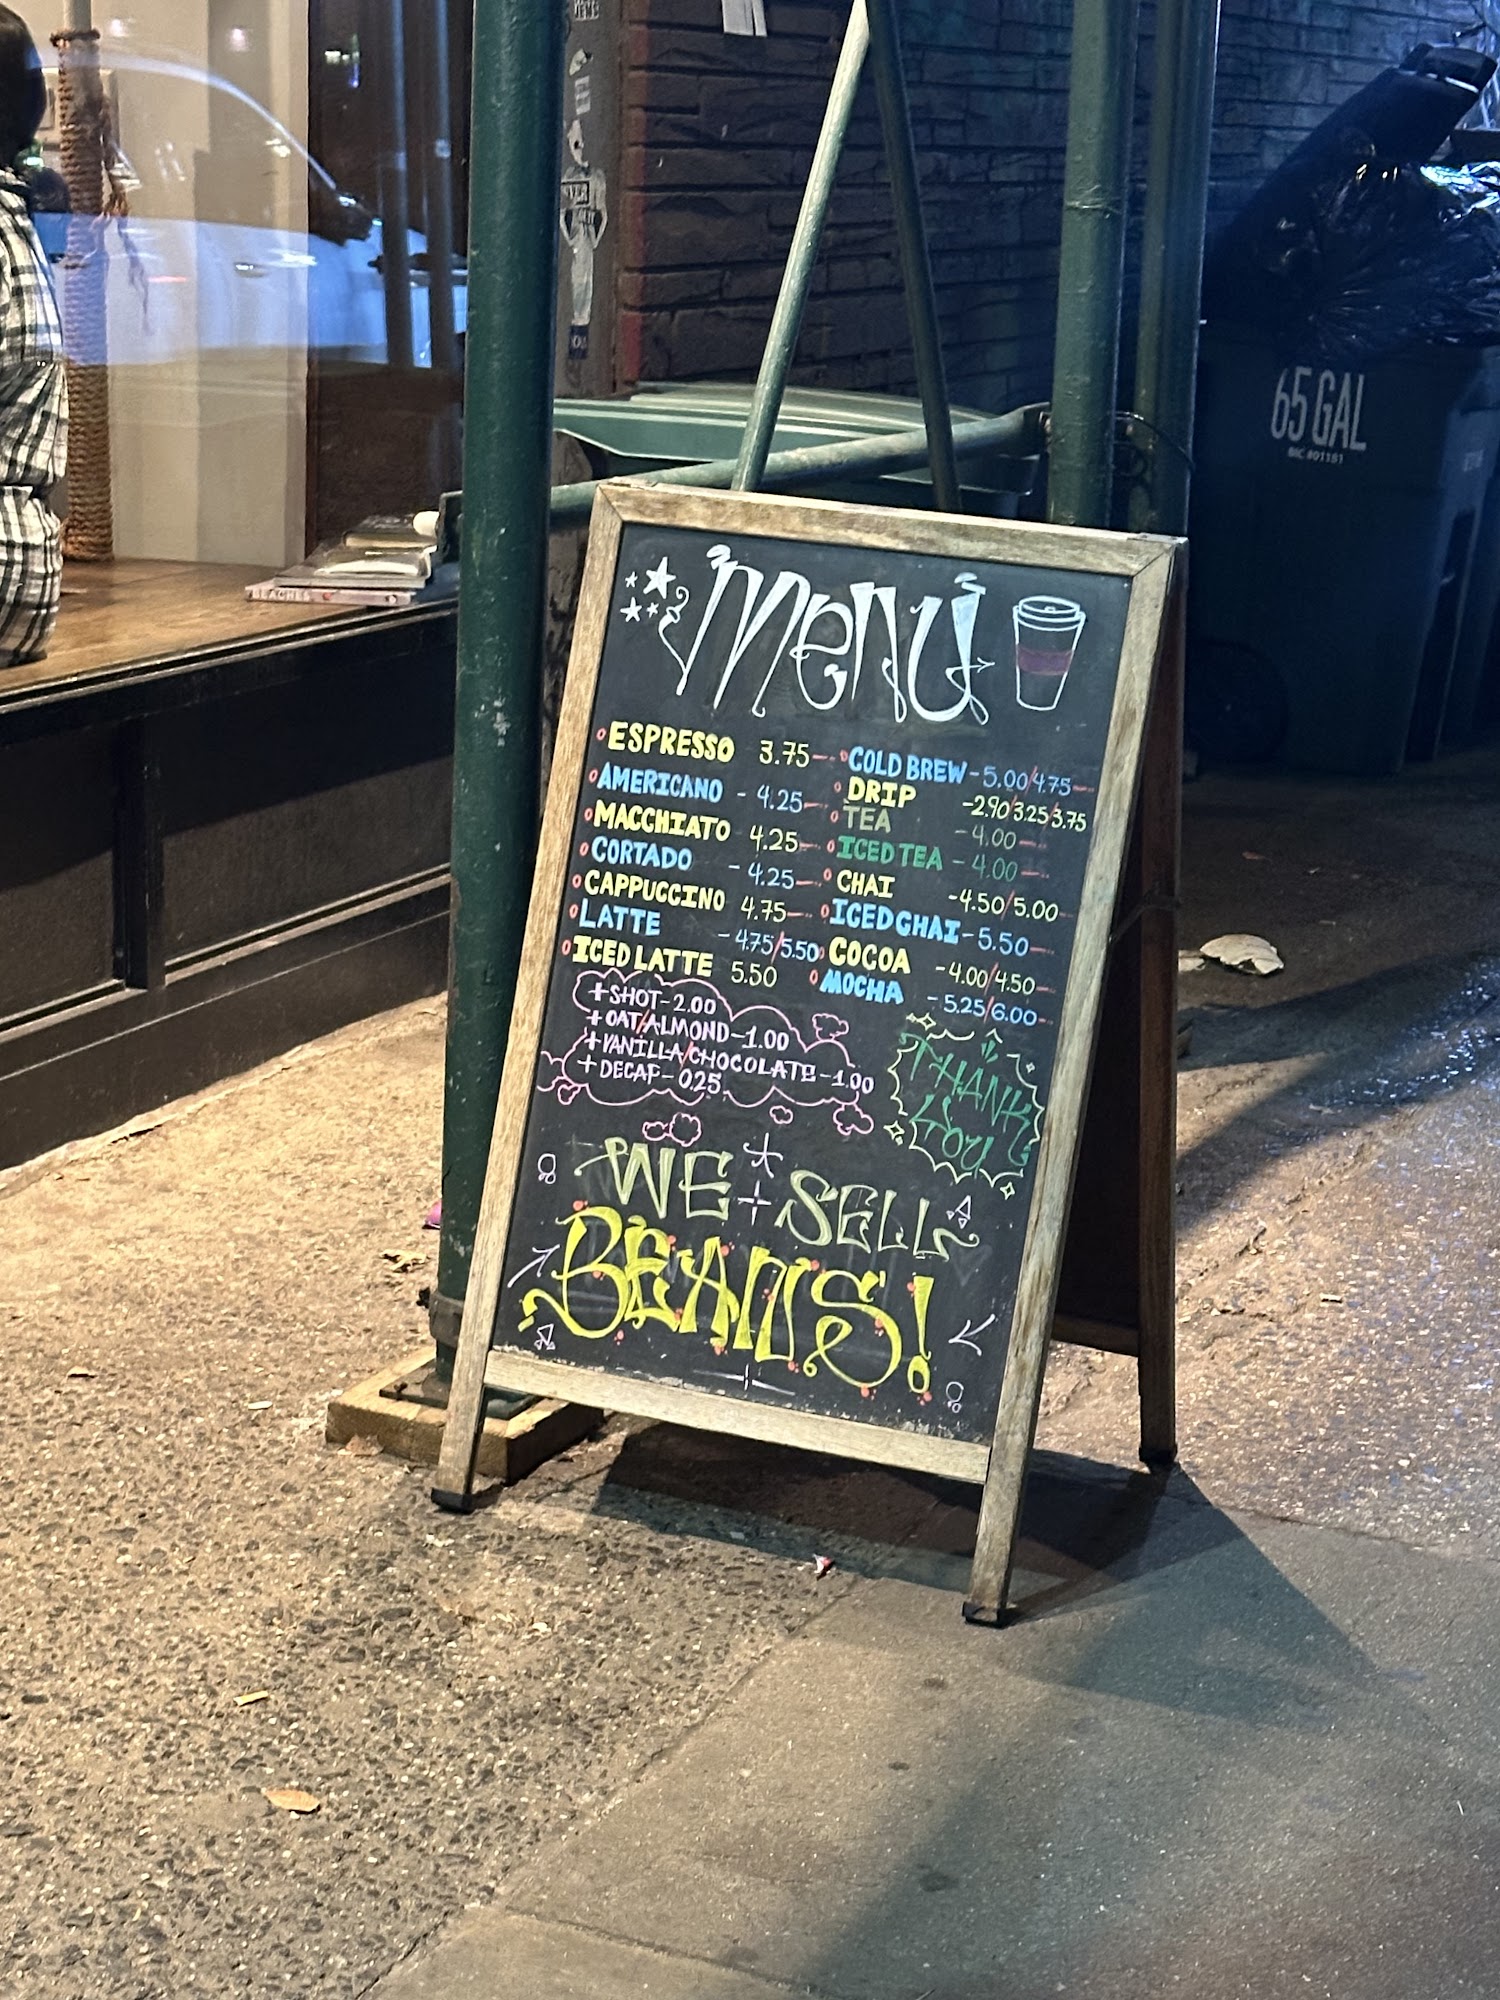 65 GAL
BEACHES
MENU
ESPRESSO 3.75
AMERICANO - 4.25
MACCHIATO 4.25
CORTADO - 4.25
CAPPUCCINO 4.75
LATTE - 4.75/5.50
ICED LATTE 5.50
COLD BREW - 5.00/4.75
DRIP - 2.90/3.25/3.75
TEA - 4.00
ICED TEA - 4.00
CHAI - 4.50/5.00
ICED CHAI - 5.50
COCOA - 4.00/4.50
MOCHA - 5.25/6.00
+ SHOT - 2.00
+ OAT/ALMOND - 1.00
+ VANILLA/CHOCOLATE - 1.00
+ DECAF - 0.25
THANK
YOU
WE SELL
BEANS!